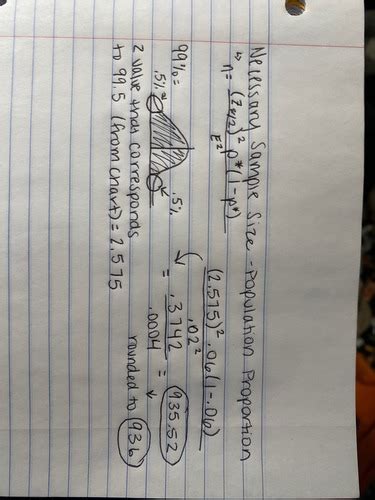 Necessary Sample Size - Population Proportion
↳ n = (Z α/2)² p*(1-p*)
E²
(2.575)² .06(1-.06)
.02²
99% =
.5%
.5%
= .3742 = 935.52
.0004
rounded to 936
z value that corresponds
to 99.5 (from chart) = 2.575